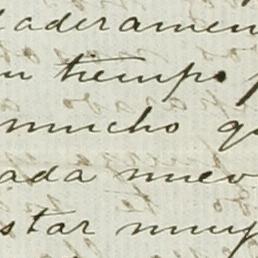 aderamen
un tiempo
mucho q
ada nuev
star muy